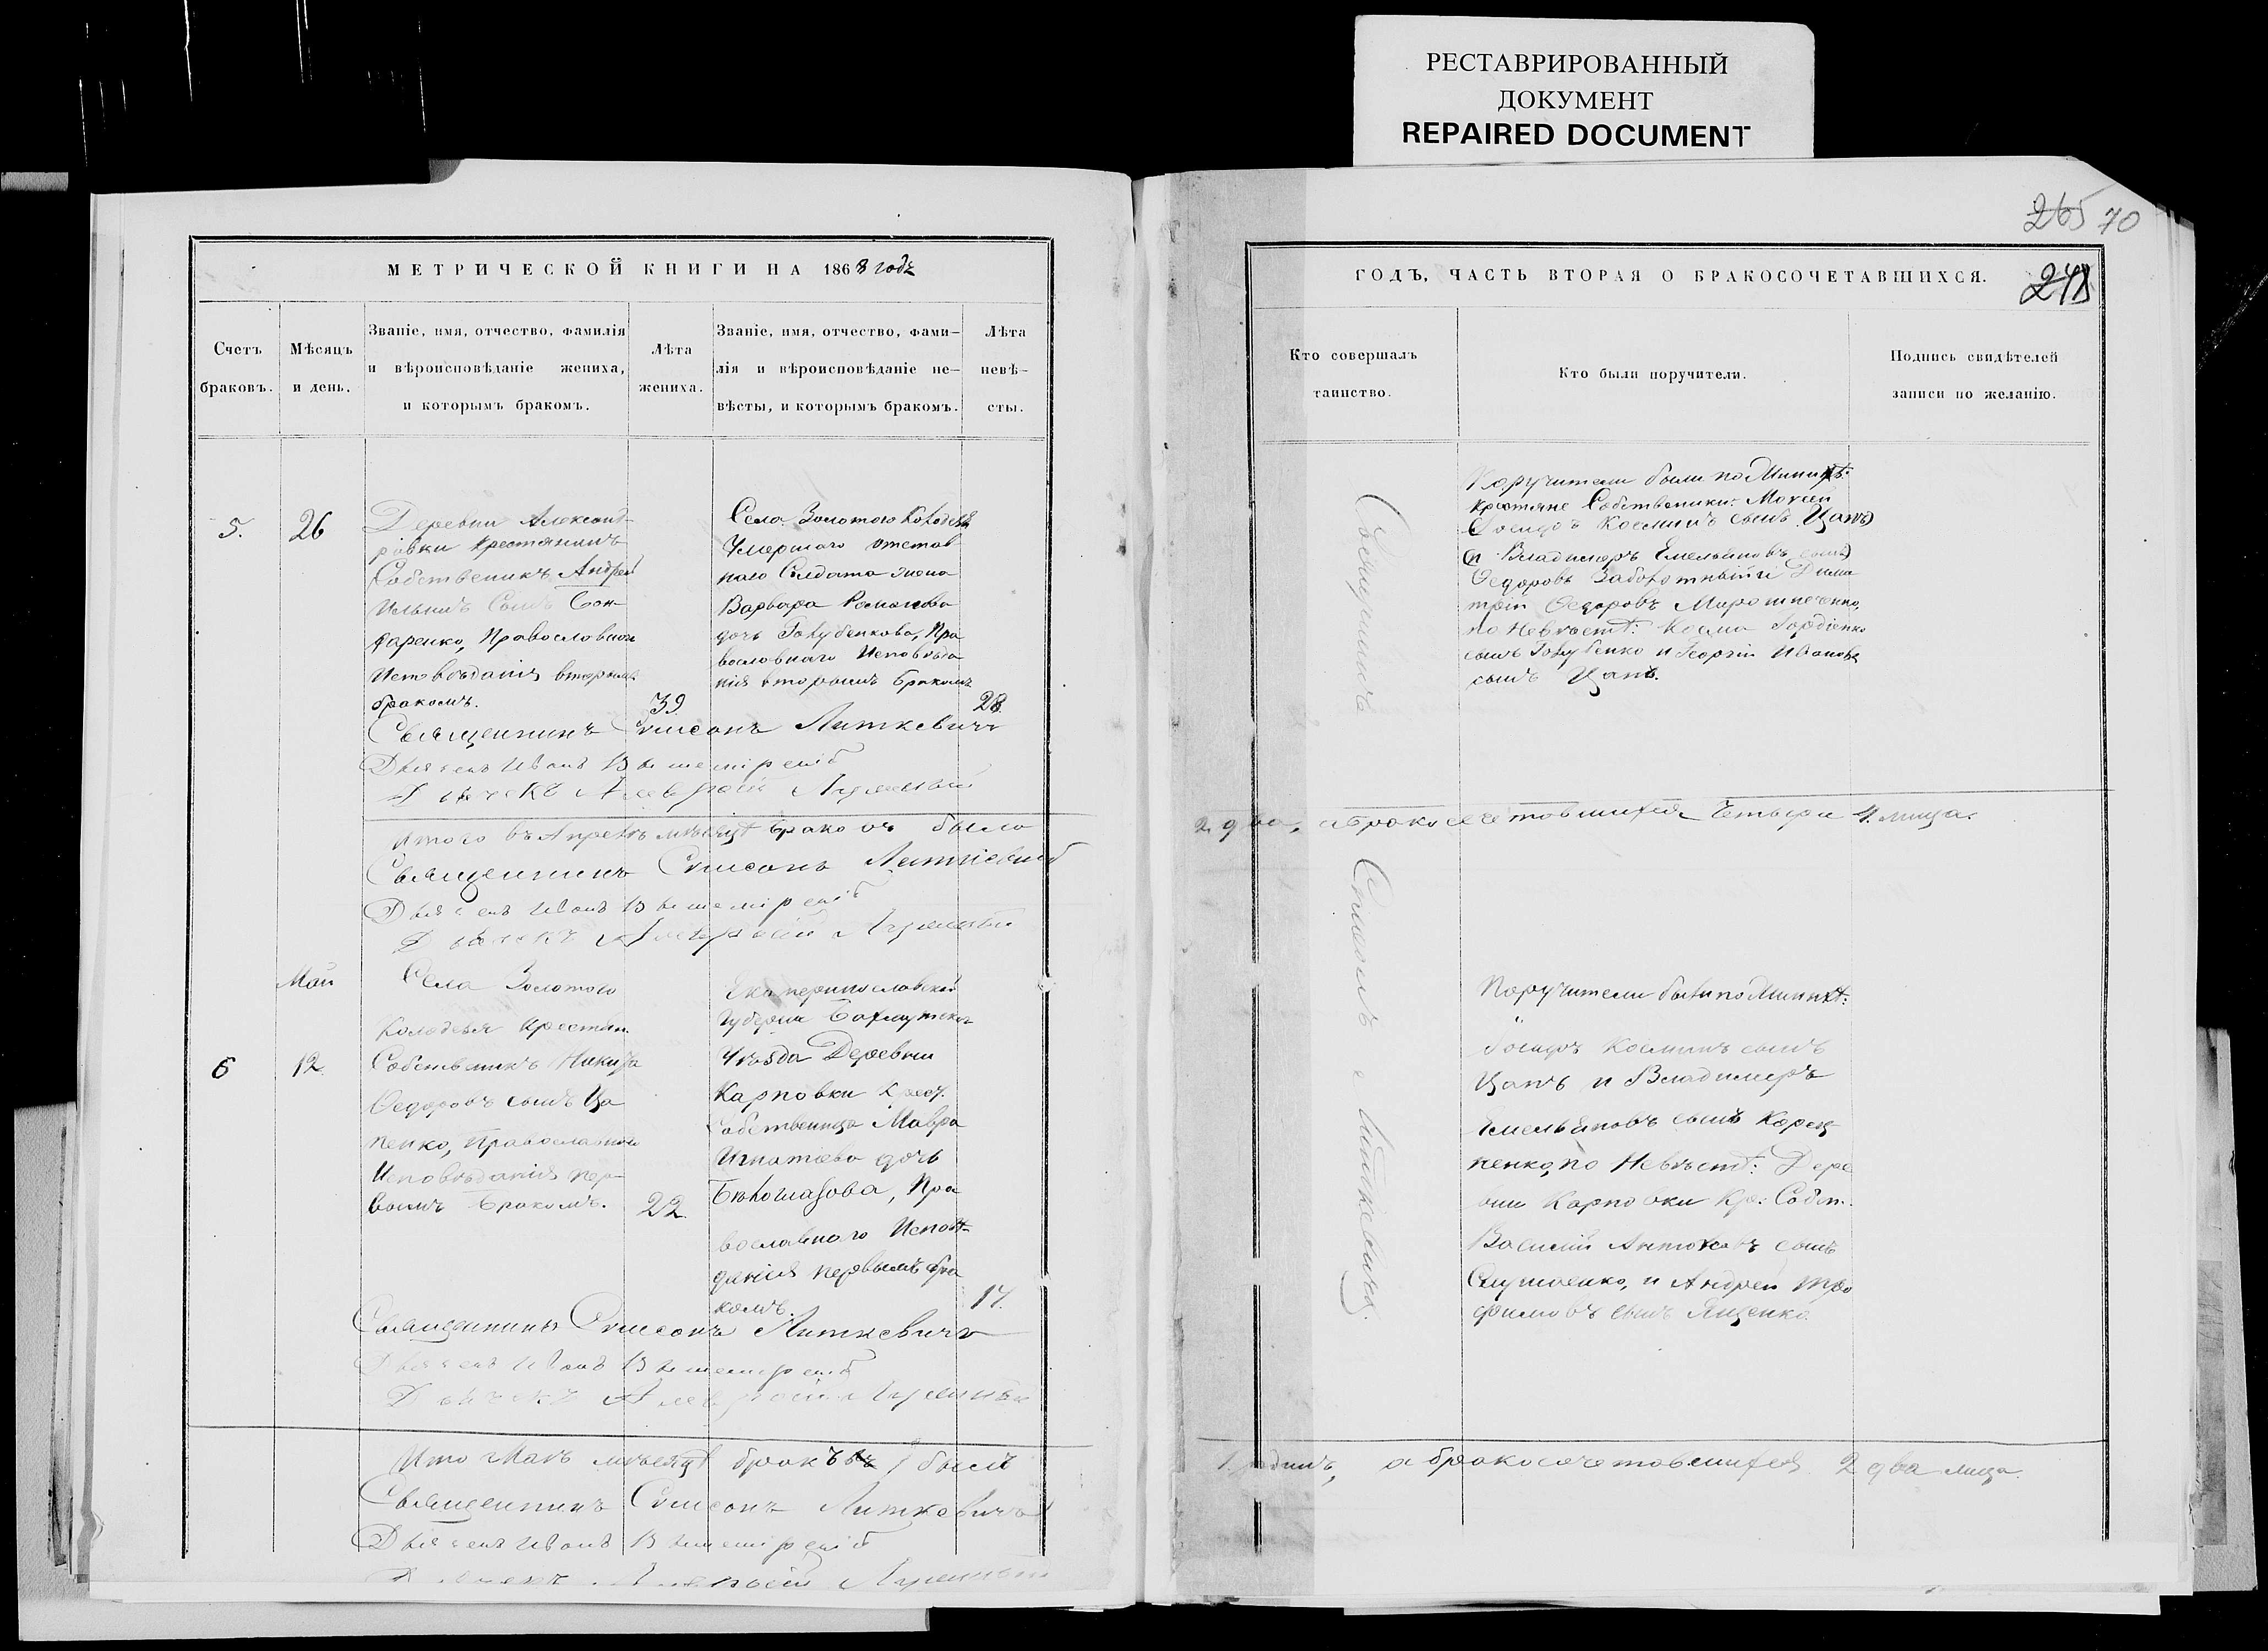 РЕСТАВРИРОВАННЫЙ
ДОКУМЕНТ
REPAIRED DOCUMENT
265 70
МЕТРИЧЕСКОЙ КНИГИ НА 1868 годъ
Счетъ
браковъ.
Мѣсяцъ
и день.
Званіе, имя, отчество, фамилія
и вѣроисповѣданіе жениха,
и которымъ бракомъ.
Лѣта
жениха.
Званіе, имя, отчество, фами-
лія и вѣроисповѣданіе не-
вѣсты, и которымъ бракомъ.
Лѣта
невѣ-
сты.
5.
26
Деревни Александ-
ровки Крестянинъ
Собственикъ Андрей
Ильинъ Сынъ Бон-
даренко, Православнаго
Исповѣданія вторымъ
бракомъ.
39
Села Золотого Колодезя
Умершаго отстав
наго Солдата жена
Варвара Романова
дочь Голубенкова, Пра
вославнаго Исповѣда
нія вторымъ бракомъ
28.
Священникъ Симеонъ Литкевичъ
Иванъ
Итого въ Апрелѣ мѣсяцѣ браковъ было
Священникъ Симеонъ Литкевичъ
Иванъ
Май
6
12
Села Золотого
Колодезя Крестян.
Собственикъ Никита
Федоровъ сынъ Ца
пенко, Православнаго
Исповѣданія пер-
вымъ бракомъ.
22.
Екатеринославской
Губерніи Бахмутскаго
Уѣзда Деревни
Карповки Крест.
Собственица Мавра
Игнатова дочь
Бѣломазова, Пра
вославнаго Исповѣ-
данія первымъ бра
комъ.
17.
Священникъ Симеонъ Литкевичъ
Иванъ
мѣсяцѣ бракъ 1 былъ
Священникъ Симеонъ Литкевичъ
Иванъ
ГОДЪ, ЧАСТЬ ВТОРАЯ О БРАКОСОЧЕТАВШИХСЯ.
248
Кто совершалъ
таинство.
Кто были поручители.
Подпись свидѣтелей
записи по желанію.
Священникъ Симеонъ Литкевичъ.
Поручители были по Жинихѣ:
крестяне Собственики:
Іосифъ Козминъ сынъ Цапъ
и Владимеръ Емельяновъ сынъ
Федоровъ Заболотный и Дими
трій Федоровъ Мирошниченко,
по Невѣстѣ: Козма Гордіенко
сынъ Голубенко и Георгій Ивановъ
сынъ Цапъ.
2 два, а бракосочетовшихся Четыри 4. лица.
Поручители были по Жинихѣ:
Іосифъ Козминъ сынъ
Цапъ и Владимеръ
Емельяновъ сынъ Корец
ненко, по Невѣстѣ: Дере
вни Карповки Кр: Собст.
Василий Антоновъ сынъ
и Андрей Тро
фимовъ сынъ Яценко.
1. одинъ, а бракосочетовшихся 2 два лица.